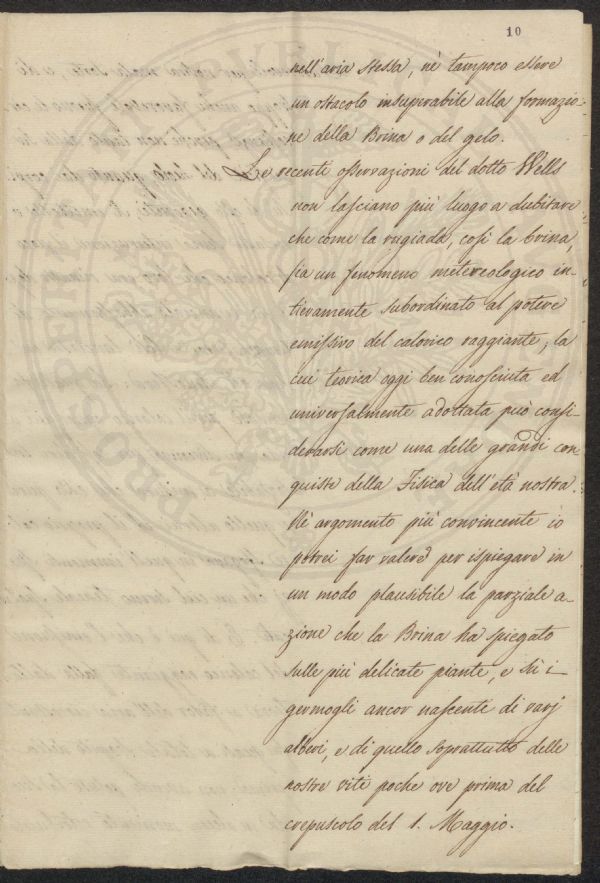 10
nell'aria stessa, nè tampoco essere
un ostacolo insuperabile alla formazio-
ne della Brina o del gelo.
Le recenti osservazioni del dotto Wells
non lasciano più luogo a dubitare
che come la rugiada, così la brina,
sia un fenomeno metereologico in-
tieramente subordinato al potere
emissivo del calorico raggiante, la
cui teorica oggi ben conosciuta ed
universalmente adottata può consi-
derarsi come una delle grandi con
quiste della Fisica dell'età nostra.
Nè argomento più convincente io
potrei far valere per ispiegare in
un modo plausibile la parziale a-
zione che la Brina ha spiegato
sulle più delicate piante, e sù i
germogli ancor nascenti di varj
alberi, e di quello soprattutto delle
nostre vite poche ore prima del
crepuscolo del 1. Maggio.